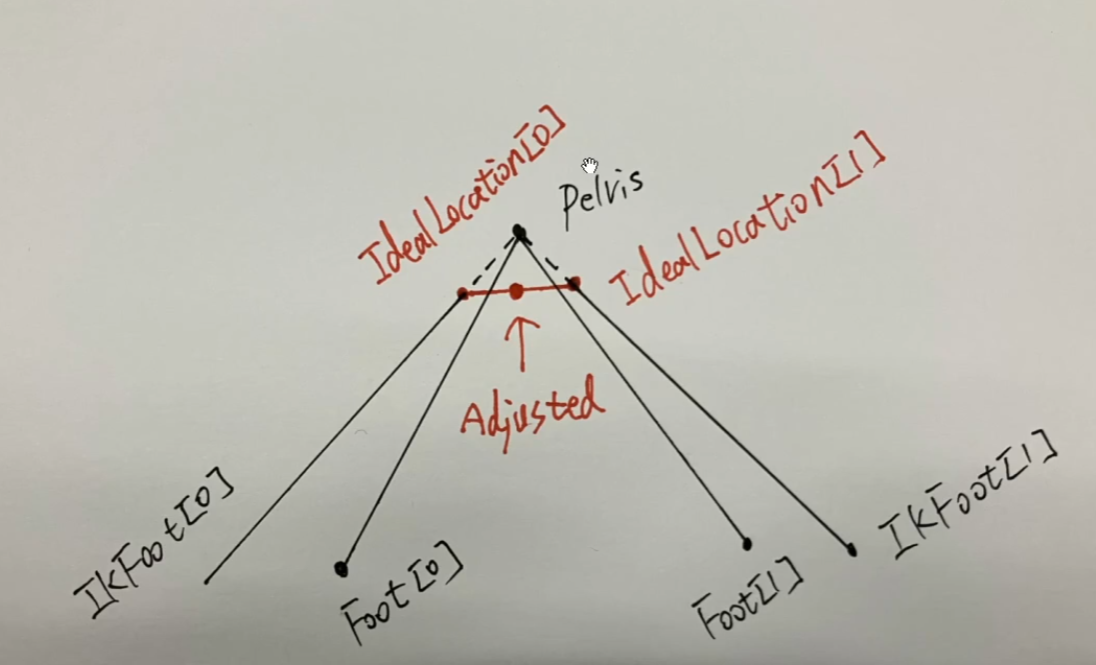 IdealLocation[0]
Pelvis
IdealLocation[1]
Adjusted
IkFoot[0]
Foot[0]
Foot[1]
IkFoot[1]